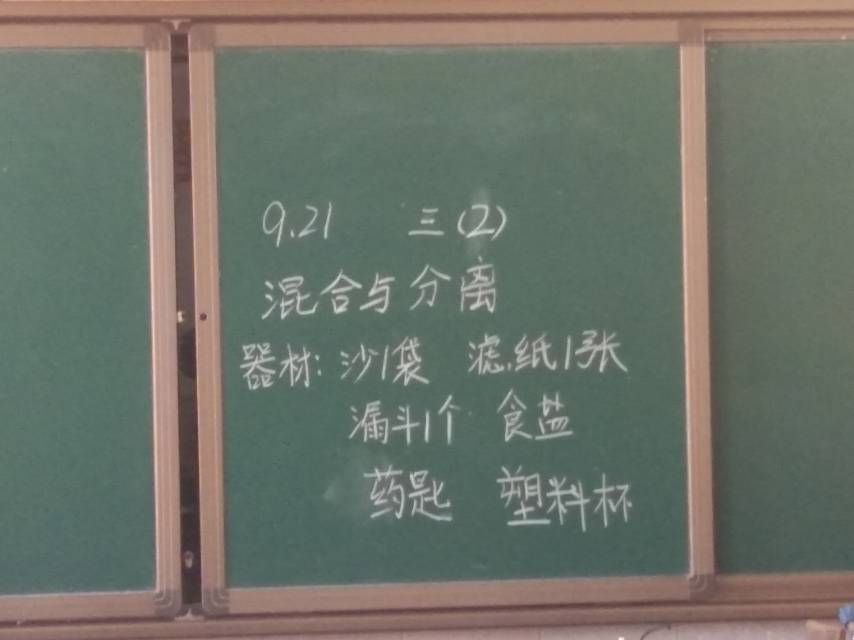 9.21 三(2)
混合与分离
器材: 沙1袋 滤纸1张
漏斗1个 食盐
药匙 塑料杯